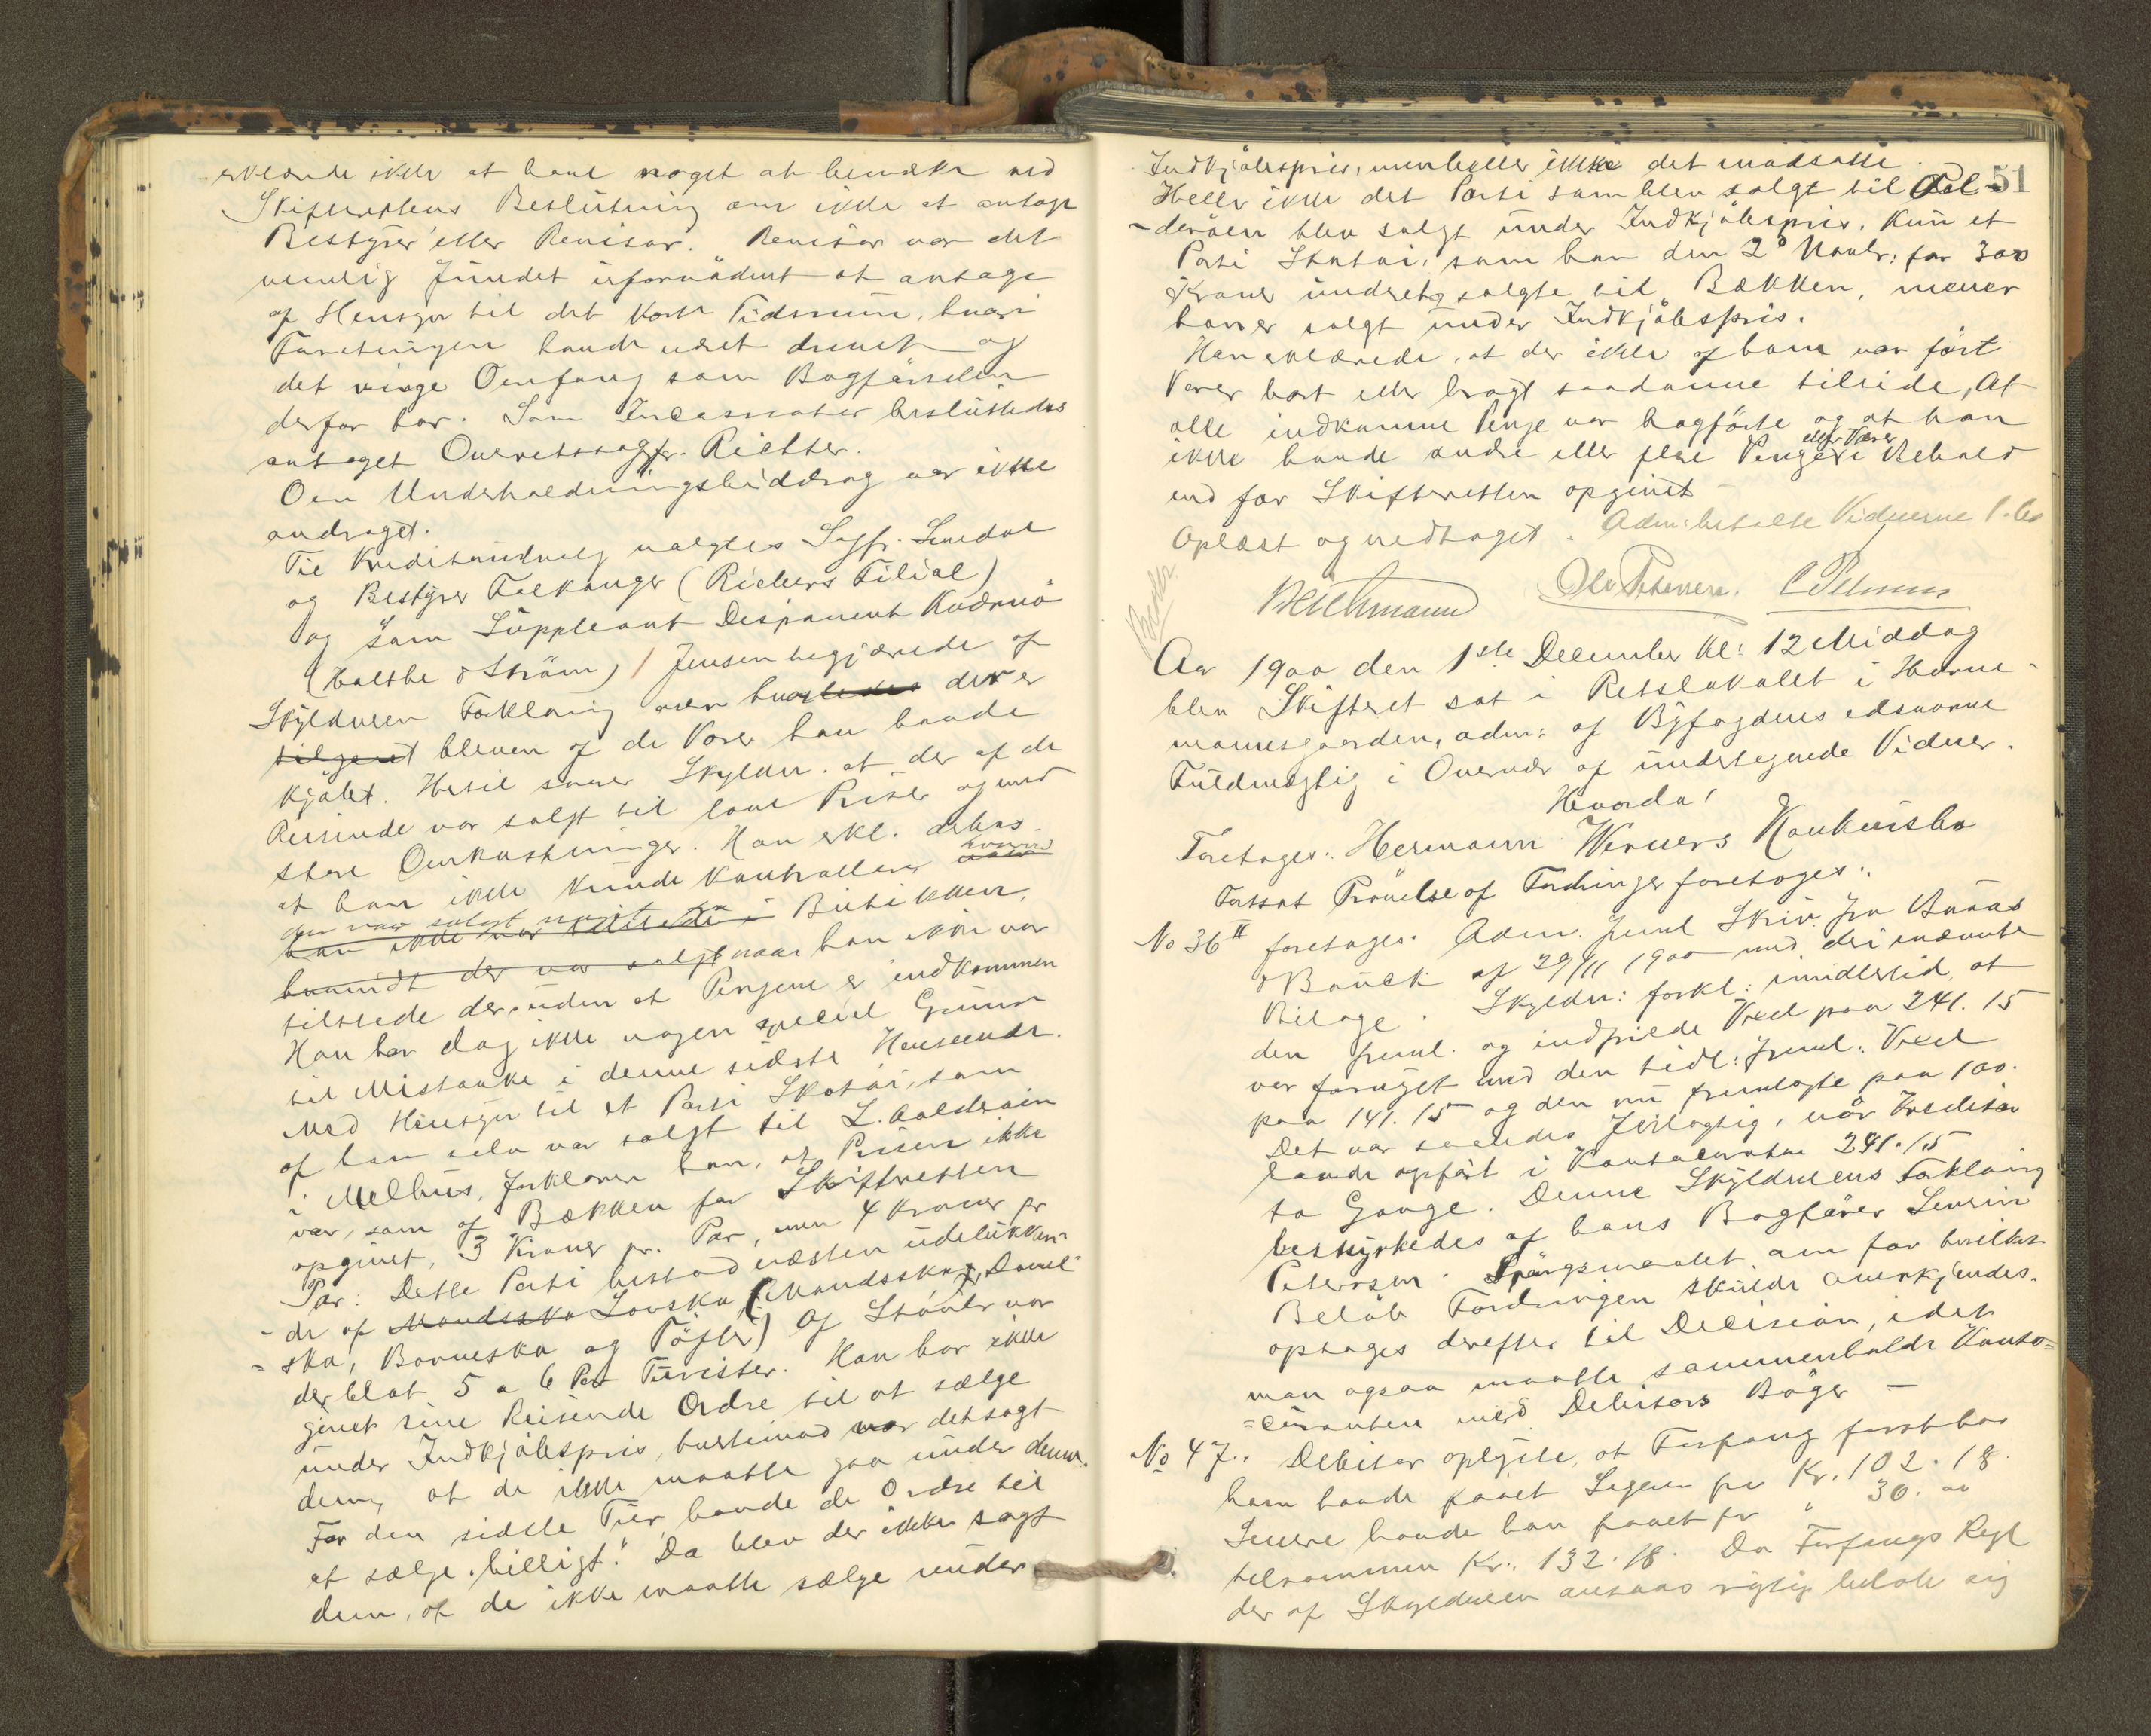 erklærede ikke at have noget at bemærke ved
Skifterettens Beslutning om ikke at antage
Bestyrer eller Revisor. Revisor var det
nemlig fundet ufornødent at antage
af Hensyn til det korte Tidsrum, hvori
Forretningen havde været drevet og
det ringe Omfang som Bogførselen
derfor har. Som Incassator besluttedes
antaget Overretssagfr. Richter.
Om Underholdningsbidrag var ikke
andraget.
Til Kreditorudvalg valgtes Sagfr. Lundal
og Bestyrer Falkanger (Riebers Filial)
og som Suppleant Disponent Kvernø
(Halthe & Strøm) / Jensen begjærede af
Skyldneren Forklaring over hvorledes der er
tilgaaet bleven af de Varer han havde
kjøbt. Hertil svarer Skyldn. at der af de
Reisende var solgt til lave Priser og med
store Omkostninger. Han erkl. derhos
at han ikke kunde kontrollere hvorvidt
der var solgt noget fra Butikken,
han ikke var tilstede i
hvorvidt der var solgt naar han ikke var
tilstede der, uden at Pengene er indkommen
Han har dog ikke nogen speciel Grund
til Mistanke i denne sidste Henseende.
Med Hensyn til et Parti Skotøi, som
af ham selv var solgt til L.
i Melhus, forklarer han, at Prisen ikke
var, som af Bækken for Skifteretten
opgivet, 3 Kroner pr. Par, men 4 Kroner pr
Par: Dette Parti bestod næsten udelukken-
-de af Mandssko Lavsko (Mandssko, Dame-
-sko, Barnesko og Tøfler) Af Støvler var
der blot 5 a 6 Par Turister. Han har ikke
givet sine Reisende Ordre til at sælge
under Indkjøbspris, hvorimod var det sagt
dem, at de ikke maatte gaa under denne.
For den sidste Tur havde de Ordre til
at sælge "billigt". Da blev der ikke sagt
dem, at de ikke maatte sælge under
51
Indkjøbspris, men heller ikke det modsatte.
Heller ikke det Parti som blev solgt til
-derøen blev solgt under Indkjøbspris. Kun et
Parti Skotøi, som han den 2 Novbr. for 300
Kroner solgte til Bækken, mener
han er solgt under Indkjøbspris.
Han erklærede, at der ikke af ham var ført
Varer bort eller bragt saadanne tilside, At
alle indkomne Penge var bogførte og at han
ikke havde andre eller flere Penge eller Varer i Behold
end for Skifteretten opgivet
Oplæst og vedtaget. Adm: betalte Vidnerne
Ole Petersen.
Aar 1900 den 1ste December Kl: 12 Middag
blev Skifteret sat i Retslokalet i Horne-
mannsgaarden, adm: af Byfogdens edsvorne
Fuldmægtig i Overvær af undertegnede Vidner.
Hvorda!
Foretoges: Hermann Werners Konkursbo
Fortsat Prøvelse af Fordringer foretoges:
No 36 II foretoges. Adm. freml Skriv. fra Buaas
& Bauck af 29/11 1900 med deri nævnte
Bilage. Skyldn: forkl: imidlertid, at
den freml. og indfriede Vexel paa 241.15
var fornyet med den tidl: freml: Vexel
paa 141.15 og den nu fremlagte paa 100.
Det var saaledes feilagtig, naar Kreditor
havde opført i Kontocuranten 241.15
to Gange. Denne Skyldnerens Forklaring
bestyrkedes af hans Bogfører Severin
Petersen. Spørgsmaalet om for hvilket
Beløb Fordringen skulde anerkjendes.
optages derefter til Decision, idet
man ogsaa maatte sammenholde Konto=
=curanten med Debitors Bøger —
No 47.. Debitor oplyste, at Forfang først hos
ham havde faaet Sager for Kr. 102.18.
Senere havde han faaet for " 30.00
tilsammen Kr: 132.18. Da Forfangs Regl
der af Skyldneren ansaaes rigtig beløb sig